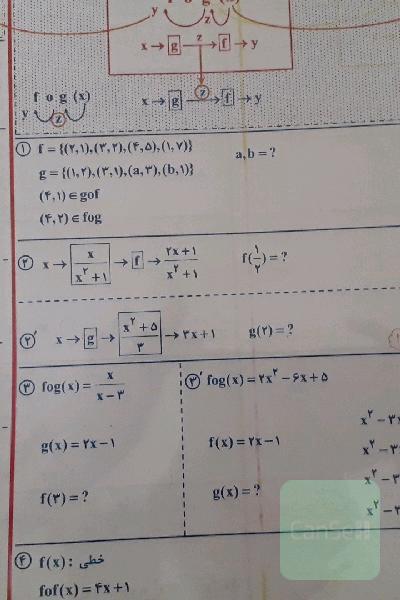 x → g → z → f → y
f o g (x)
y z
x → g → z → f → y
① f = {(۲,۱),(۳,۲),(۴,۵),(۱,۷)} a,b = ?
g = {(۱,۲),(۳,۱),(a,۳),(b,۱)}
(۴,۱) ∈ gof
(۴,۲) ∈ fog
② x → x/(x^۲+۱) → f → (۲x+۱)/(x^۲+۱) f(۱/۲) = ?
②′ x → g → (x^۲+۵)/۳ → ۳x+۱ g(۲) = ?
③ fog(x) = x/(x−۳)
g(x) = ۲x−۱
f(۳) = ?
③′ fog(x) = ۲x^۲ − ۶x + ۵
f(x) = ۲x−۱
g(x) = ?
④ f(x) : خطی
fof(x) = ۴x+۱
CanSell